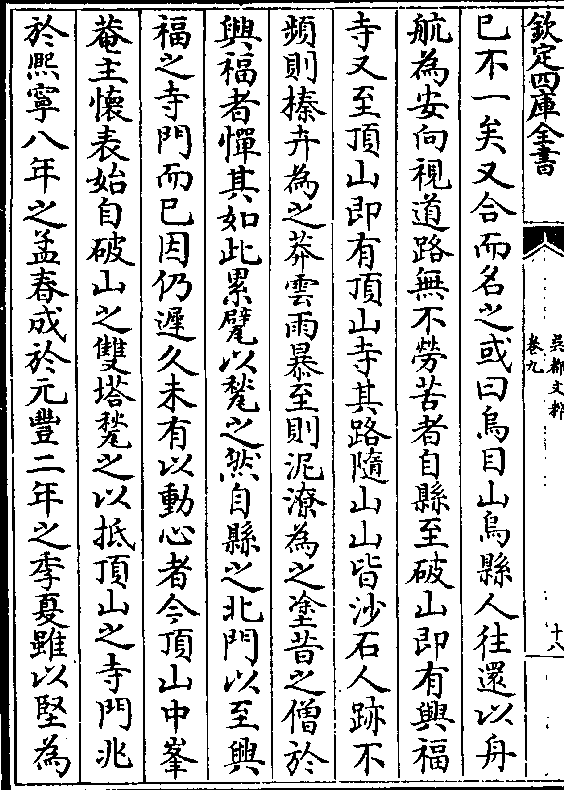 欽定四庫全書
吳都文粹
卷九
十八
已不一矣又合而名之或曰烏目山烏縣人往還以舟
航為安向視道路無不勞苦者自縣至破山即有興福
寺又至頂山即有頂山寺其路隨山山皆沙石人跡不
頻則榛卉為之莽雲雨暴至則泥潦為之塗昔之僧於
興福者憚其如此累甓以甃之然自縣之北門以至興
福之寺門而已因仍遲久未有以動心者今頂山中峯
菴主懷表始自破山之雙塔甃之以抵頂山之寺門兆
於熙寧八年之孟春成於元豐二年之季夏雖以堅為